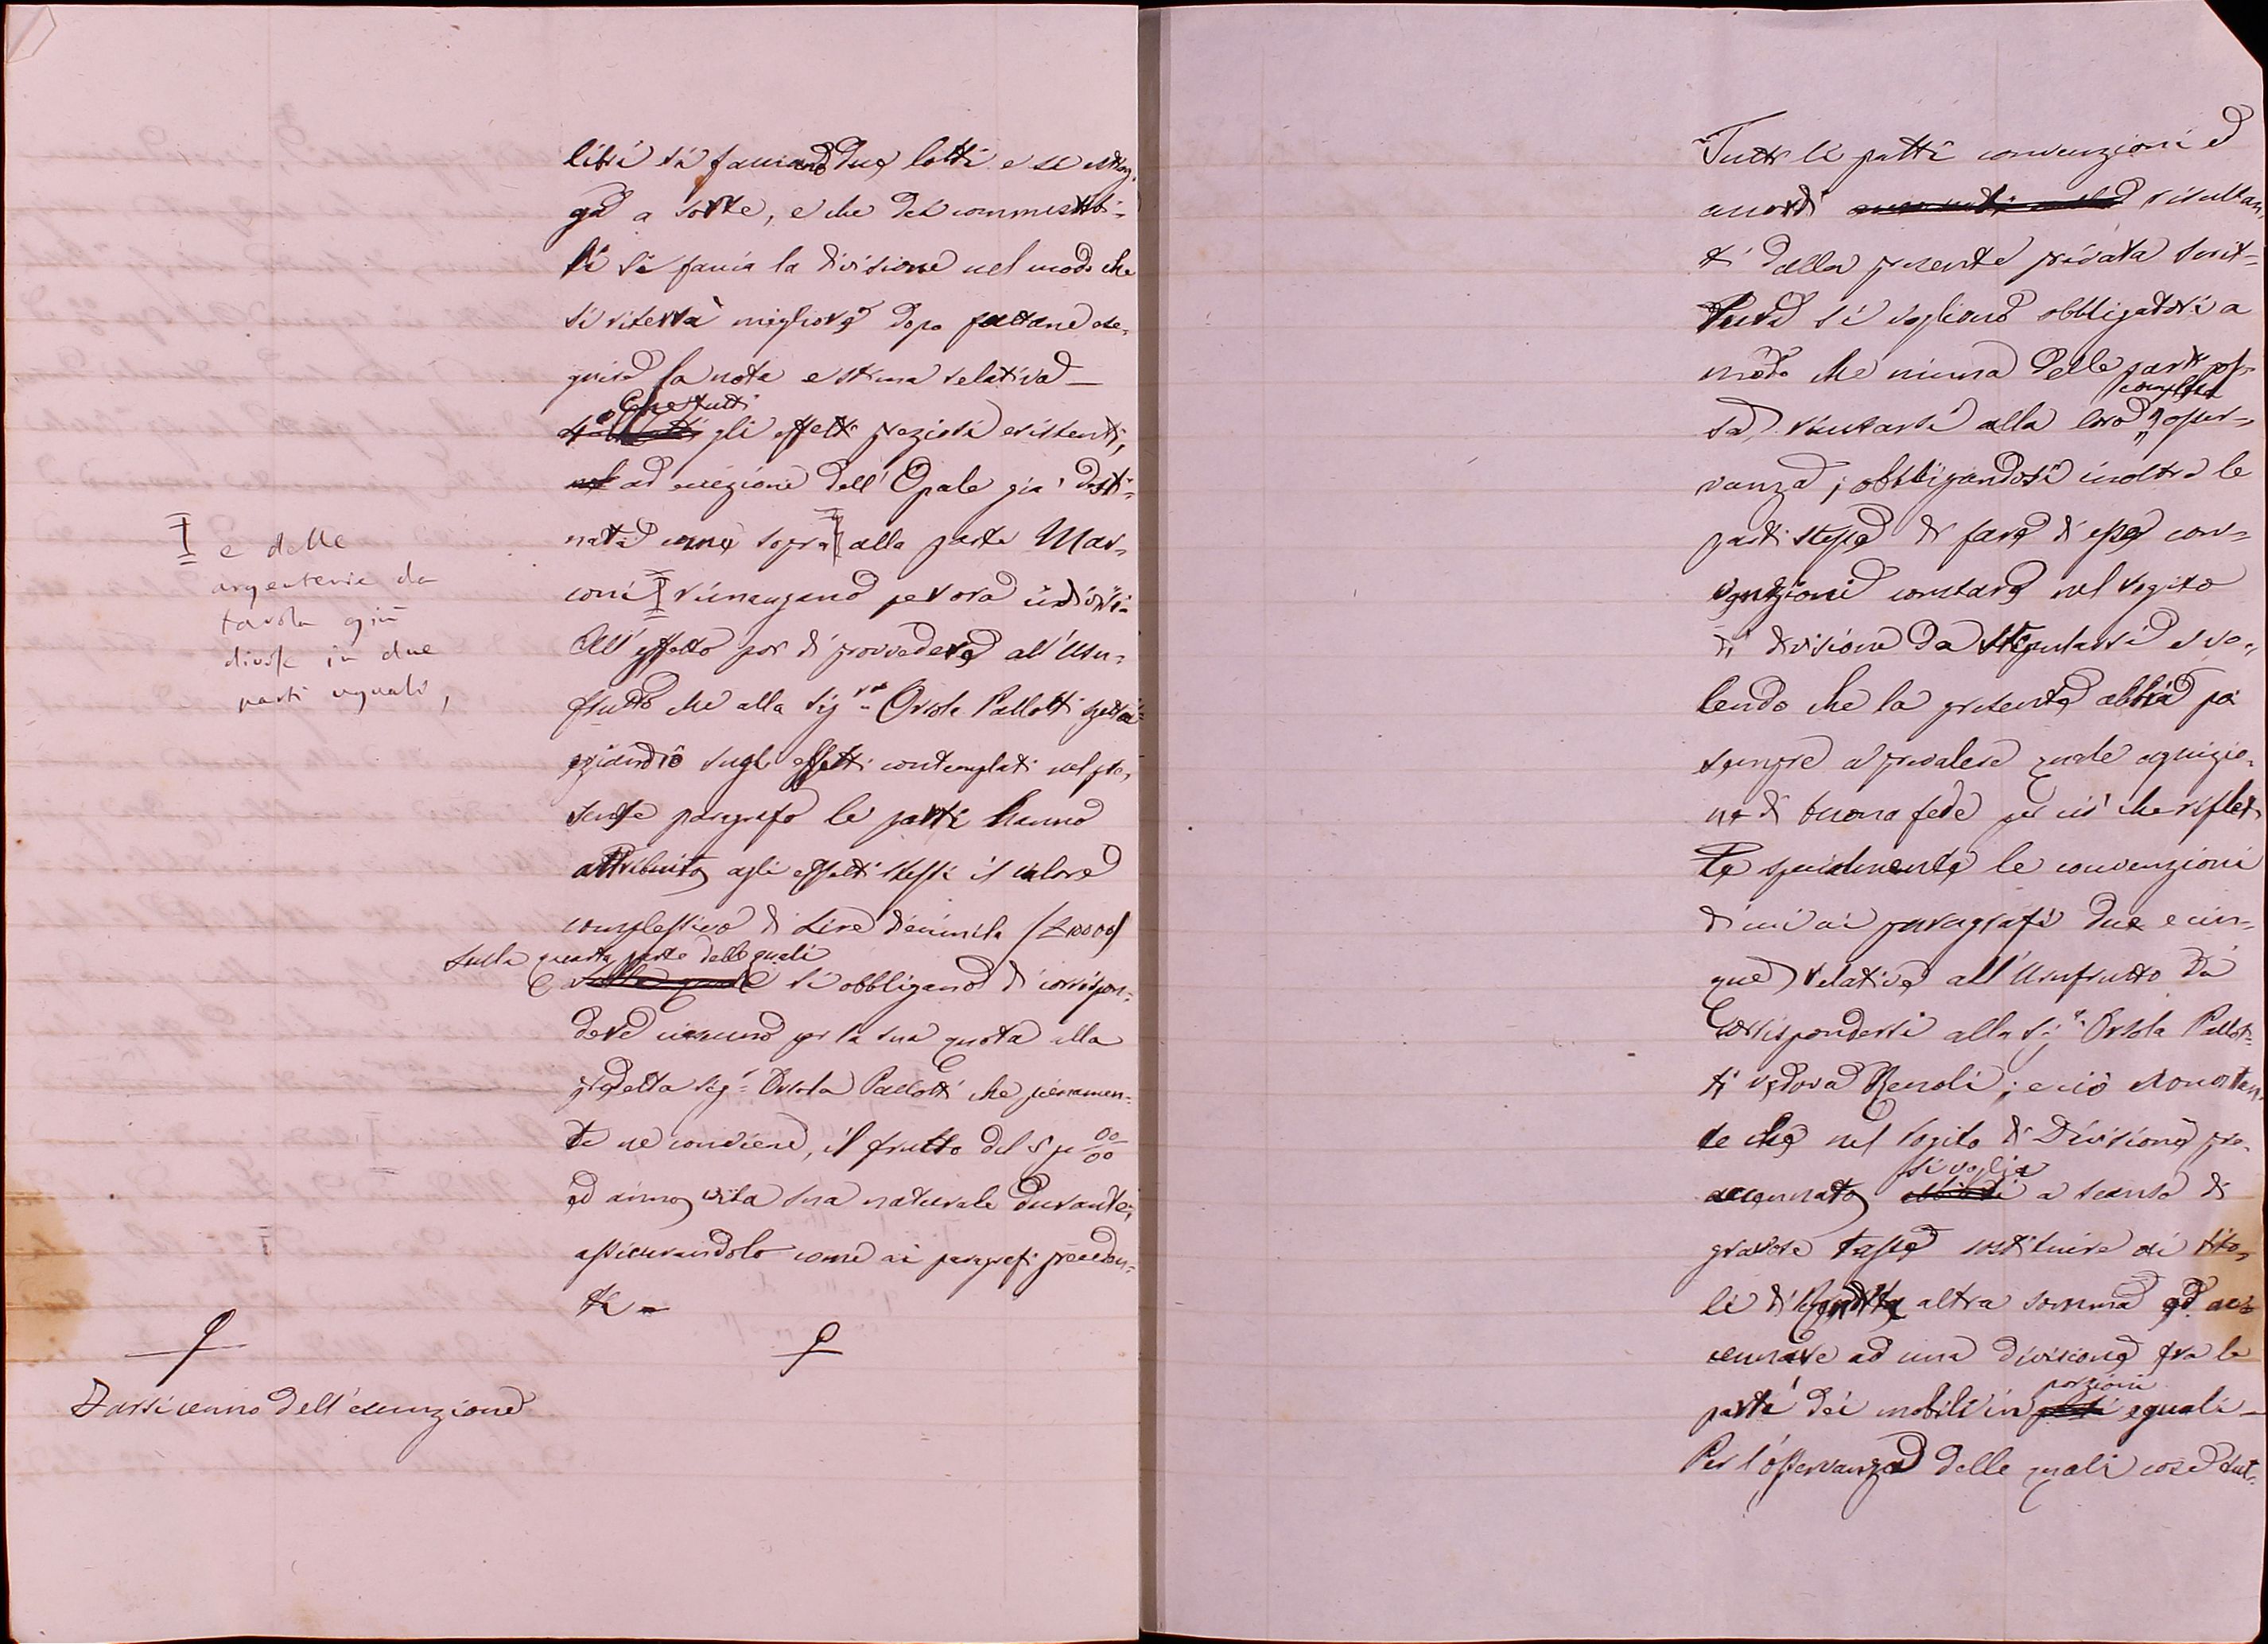 libri si facciano due lotti e si estrag-
ga a sorte, e che dei commestibi-
li si faccia la divisione nel modo che
si riterrà migliore dopo fattane ese-
guire la nota e stima relativa —
Che tutti
gli effetti preziosi esistenti,
ad eccezione dell'Opale già desti-
nata come sopra alla parte Mar-
coni I rimangano per ora indivisi
All'effetto poi di provvedere all'Usu-
frutto che alla Sig.ra Orsola Pallotti spetta
eziandio sugli effetti contemplati nel pre-
sente paragrafo le parti hanno
attribuito agli effetti stessi il valore
complessivo di Lire diecimila (£10000)
sulla quarta parte delle quali
si obbligano di corrispon-
dere ciascuno per la sua quota alla
predetta Sig.ª Orsola Pallotti che pienamen-
te ne conviene, il frutto del 5 p 00/00
ad anno, vita sua naturale durante,
assicurandolo come ai paragrafi preceden-
ti —
I e delle
argenterie da
tavola già
divise in due
parti uguali,
Farsi cenno dell'esenzione
Tutti li patti convenzioni ed
accordi risultan-
ti dalla presente privata scrit-
tura si vogliono obbligatori a
modo che niuna delle parti pos-
completa
sa rifiutarsi alla loro osser-
vanza; obbligandosi inoltre le
parti stesse di fare di esse con-
venzioni constare nel rogito
di divisione da stipularsi e vo-
lendo che la presente abbia poi
sempre a prevalere quale cognizio-
ne di buona fede per ciò che riflet-
te specialmente le convenzioni
di cui ai paragrafi due e cin-
que relative all'Usufrutto da
Corrispondersi alla Sig.ª Orsola Pallot-
ti vedova Renoli; e ciò nonostan-
te che nel rogito di Divisione pre-
si voglia
accennato a scanso di
gravose tasse sostituire ai tito-
li di Rendita altra somma ed ac-
cennare ad una divisione fra le
porzioni
parti dei mobili in eguali —
Per l'osservanza delle quali cose tut-